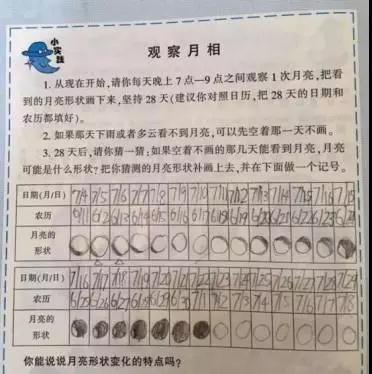 小实践
观察月相
1. 从现在开始,请你每天晚上7点—9点之间观察1次月亮,把看
到的月亮形状画下来,坚持28天(建议你对照日历,把28天的日期和
农历都填好)。
2. 如果那天下雨或者多云看不到月亮,可以先空着那一天不画。
3. 28天后,请你猜一猜:如果空着不画的那几天能看到月亮,月亮
可能是什么形状?把你猜测的月亮形状补画上去,并在下面做一个记号。
日期(月/日) 7/4 7/5 7/6 7/7 7/8 7/9 7/10
农历 6/11 6/12 6/13 6/14 6/15 6/16 6/17
月亮的
形状
日期(月/日) 7/16 7/17 7/18 7/19 7/20 7/21 7/22 7/23 7/24 7/25 7/26 7/27 7/28 7/29
农历 6/25 6/26 6/27 6/28 6/29 6/30 7/1 7/2 7/3 7/4 7/5 7/6 7/7 7/8
月亮的
形状
你能说说月亮形状变化的特点吗?